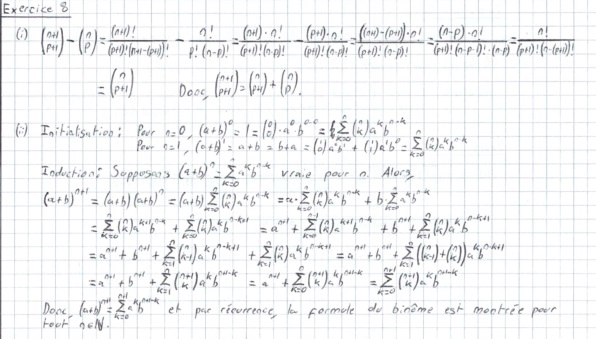 Exercice 8
(i) (n+1 p+1) - (n p) = (n+1)!/((p+1)!(n+1-(p+1))!) - n!/(p!(n-p)!) = (n+1)·n!/((p+1)!(n-p)!) - (p+1)·n!/((p+1)!(n-p)!) = ((n+1)-(p+1))·n!/((p+1)!(n-p)!) = (n-p)·n!/((p+1)!(n-p-1)!·(n-p)) = n!/((p+1)!(n-(p+1))!)
= (n p+1) Donc, (n+1 p+1) = (n p) + (n p+1).
(ii) Initialisation: Pour n=0, (a+b)^0 = 1 = (0 0)·a^0 b^0-0 = ∑_{k=0}^{n} (n k) a^k b^{n-k}
Pour n=1, (a+b)^1 = a+b = b+a = (1 0) a^0 b^1 + (1 1) a^1 b^0 = ∑_{k=0}^{n} (n k) a^k b^{n-k}
Induction: Supposons (a+b)^n = ∑_{k=0}^{n} a^k b^{n-k} vraie pour n. Alors,
(a+b)^{n+1} = (a+b)(a+b)^n = (a+b) ∑_{k=0}^{n} (n k) a^k b^{n-k} = a·∑_{k=0}^{n} (n k) a^k b^{n-k} + b·∑_{k=0}^{n} (n k) a^k b^{n-k}
= ∑_{k=0}^{n} (n k) a^{k+1} b^{n-k} + ∑_{k=0}^{n} (n k) a^k b^{n-k+1} = a^{n+1} + ∑_{k=0}^{n-1} (n k) a^{k+1} b^{n-k} + b^{n+1} + ∑_{k=1}^{n} (n k) a^k b^{n-k+1}
= a^{n+1} + b^{n+1} + ∑_{k=1}^{n} (n k-1) a^k b^{n-k+1} + ∑_{k=1}^{n} (n k) a^k b^{n-k+1} = a^{n+1} + b^{n+1} + ∑_{k=1}^{n} ((n k-1) + (n k)) a^k b^{n-k+1}
= a^{n+1} + b^{n+1} + ∑_{k=1}^{n} (n+1 k) a^k b^{n+1-k} = a^{n+1} + ∑_{k=0}^{n} (n+1 k) a^k b^{n+1-k} = ∑_{k=0}^{n+1} (n+1 k) a^k b^{n+1-k}
Donc, (a+b)^{n+1} = ∑_{k=0}^{n+1} a^k b^{n+1-k} et par récurrence, la formule du binôme est montrée pour
tout n∈ℕ.